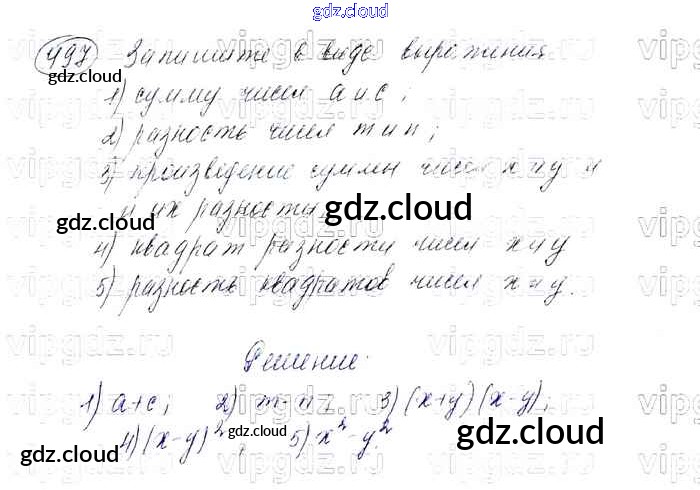 gdz.cloud
497 Запишите в виде выражения
1) сумму чисел a и c;
2) разность чисел m и n;
3) произведение суммы чисел x и y и
и их разности
4) квадрат разности чисел x и y
5) разность квадратов чисел x и y.
Решение.
1) a+c; 2) m-n; 3) (x+y)(x-y);
4) (x-y)²; 5) x²-y²
gdz.cloud
gdz.cloud
gdz.cloud
gdz.cloud
gdz.cloud
gdz.cloud
gdz.cloud
vipgdz.ru